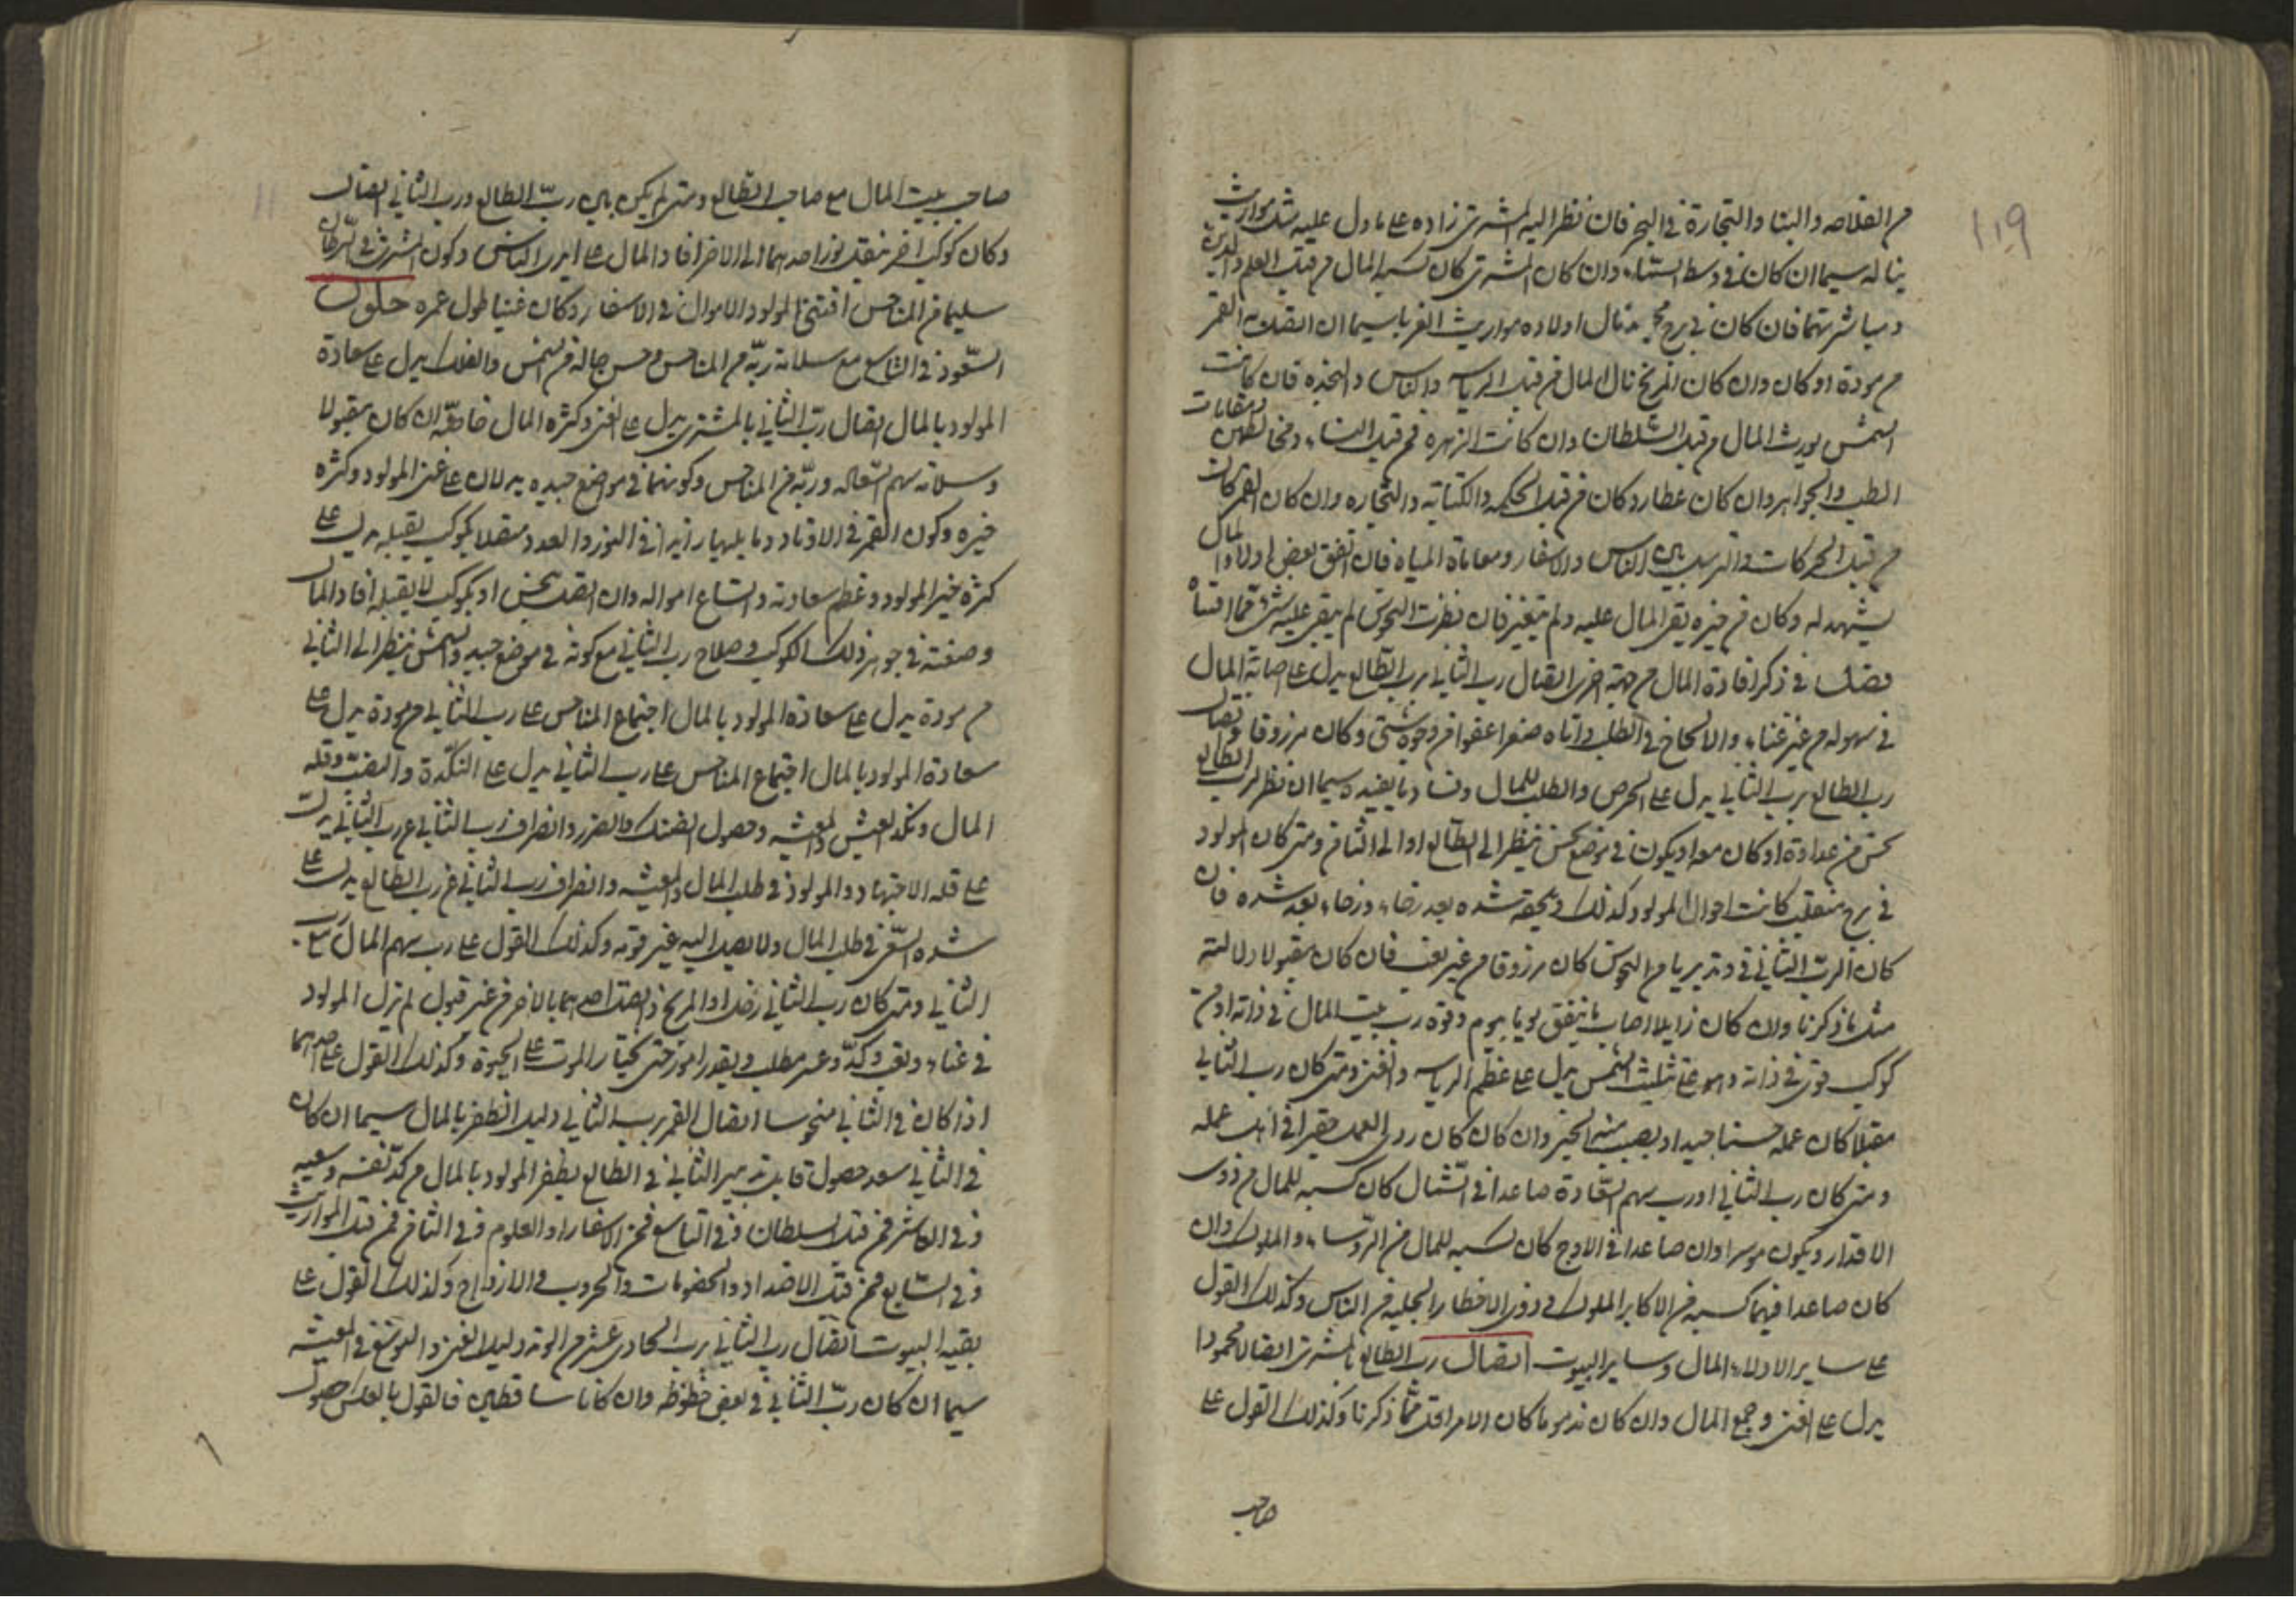 ١١٩
من الفلاحه والبنا والتجارة في البحر فان نظر اليه المشتري زاده على ما دل عليه مثل مواريث
يناله سيما ان كان في وسط السماء وان كان المشتري كان كسبه المال من قبل العلم والدين
فان كان في برج نال اولاده مواريث الغربا سيما ان اتصل به القمر
من مودة او كان وان كان المريخ نال المال من قبل الرياسه والناس والنجده فان كانت
الشمس يورث المال من قبل السلطان وان كانت الزهره فمن قبل النساء ومخالطهن
الطيب والجواهر وان كان عطارد كان من قبل الحكمه والكتابه والتجاره وان كان القمر كان
من قبل الحركات والترسل بين الناس والاسفار ومعاناة المياه فان اتفق بعض اولاد المال
يشهد له وكان من خيره بقى المال عليه ولم يتغير فان نظرت النحوس لم يبقى عليه شئ مما اقتناه
فصل في ذكر افادة المال من جهة اخرى اتصال رب الثاني برب الطالع يدل على اصابة المال
في سهوله من غير عناء والانجاح في الطلب واتاه صفرا عفوا من وجوه شتى وكان مرزوقا واتصال
رب الطالع برب الثاني يدل على الحرص والطلب للمال وفساد ما يفيده سيما ان نظر لرب الطالع
نحس من عداوة او كان معه او يكون في موضع نحس ينظر الى الطالع او الى الثامن ومتى كان المولود
في برج منقلب كانت احوال المولود كذلك شده بعد رخاء ورخاء بعد شده فان
كان الرب الثاني في وتد بريا من النحوس كان مرزوقا من غير تعب فان كان مقبولا دلالته
مثل ما ذكرنا وان كان زايلا اصاب ما ينفق يوما بيوم وقوة رب بيت المال في ذاته او من
كوكب قوي في ذاته وهو على تثليث الشمس يدل على عظم الرياسه والغنى ومتى كان رب الثاني
مقبلا كان عمله حسنا جيدا ويصيب منه الخير وان كان كان ردى العمل حقيرا في عمله
ومتى كان رب الثاني او رب سهم السعادة صاعدا في الشمال كان كسبه للمال من ذوى
الاقدار ويكون موسرا وان صاعدا في الاوج كان كسبه للمال من الرؤساء والملوك وان
كان صاعدا فيهما كسبه من الاكابر الملوك وذوى الاخطار الجليه من الناس وكذلك القول
على ساير الادلاء المال وساير البيوت اتصال رب الطالع بالمشتري اتصالا محمودا
يدل على الغنى وجمع المال وان كان مذموما كان الامر اقل مما ذكرنا وكذلك القول على
صاحب
صاحب بيت المال مع صاحب الطالع ومتى لم يكن بين رب الطالع ورب الثاني اتصال
وكان كوكب اخر ينقل نور احدهما الى الاخر افاد المال على ايدى الناس وكون المشترى في السرطان
سليما من المناحس اقتنى المولود الاموال في الاسفار وكان غنيا طول عمره حلول
السعود في التاسع مع سلامة ربه من المناحس وحسن حاله من الشمس والفلك يدل على سعادة
المولود بالمال اتصال رب الثاني بالمشتري يدل على الغنى وكثرة المال خاصة ان كان مقبولا
وسلامة سهم السعاده وربه من المناحس وكونهما في مواضع جيده يدلان على غنى المولود وكثرة
خيره وكون القمر في الاوتاد وما يليها زايدا في النور والعدد متصلا بكوكب يقبله يدل على
كثرة خير المولود وعظم سعادته واتساع امواله وان اتصل بنحس او بكوكب لا يقبله افاد المال
وصنعته في جوهر ذلك الكوكب وصلاح رب الثاني مع كونه في موضع جيد والشمس ينظر الى الثاني
من مودة يدل على سعادة المولود بالمال اجتماع المناحس على رب الثاني من مودة يدل على
سعادة المولود بالمال اجتماع المناحس على رب الثاني يدل على النكدة والتعب وقلة
المال ونكد العيش والمعيشه وحصول الضنك والضرر وانصراف رب الثاني عن رب الثاني يدل
على قله الاجتهاد والمولود في طلب المال والمعيشه وانصراف رب الثاني عن رب الطالع يدل على
شده السفر في طلب المال ولا يصل اليه غير قوته وكذلك القول على رب سهم المال مع رب
الثاني ومتى كان رب الثاني زحل او المريخ واتصل احدهما بالاخر من غير قبول لم يزل المولود
في عناء وتعب وكد وعسر مطلب حتى يختار الموت على الحيوة وكذلك القول على احدهما
اذا كان في الثاني منحوسا اتصال القمر برب الثاني دليل الظفر بالمال سيما ان كان
في الثاني سعد حصول في الطالع يظفر المولود بالمال من كد نفسه وسعيه
وفي العاشر فمن قبل السلطان وفي التاسع فمن الاسفار او العلوم وفي الثامن فمن قبل المواريث
وفي السابع فمن قبل الاضداد والخصومات والحروب والازواج وكذلك القول على
بقيه البيوت اتصال رب الثاني برب الحادي عشر من الوتد دليل الغنى والتوسع في المعيشه
سيما ان كان رب الثاني في بعض حظوظه وان كانا ساقطين فالقول بالعكس حصول